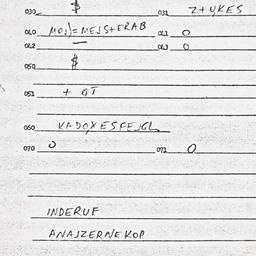 030 $ 031 Z+YKES
040 MOJ)=MEJS+ERAB 041 0
042 — 043 0
050 $
051 + GT
060 KADOXESFEJGL
070 0 071 0
INDERUF
ANAJZERNEKOP